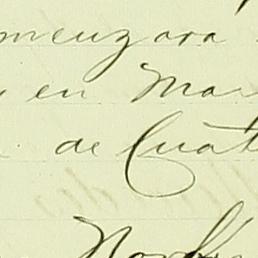 menzara
en Mar
de Cuat